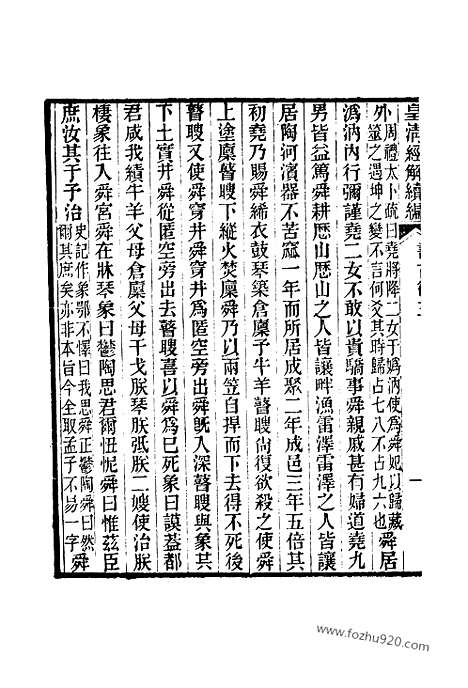 皇清經解續編
一
外周禮太卜疏曰堯將降二女于嬀汭使爲舜妃以歸藏
筮之遇坤之變不言何爻其時歸占七八不占九六也舜居
嬀汭內行彌謹堯二女不敢以貴驕事舜親戚甚有婦道堯九
男皆益篤舜耕歷山歷山之人皆讓畔漁雷澤雷澤之人皆讓
居陶河濱器不苦窳一年而所居成聚二年成邑三年五倍其
初堯乃賜舜絺衣鼓琴築倉廩予牛羊瞽瞍尚復欲殺之使舜
上塗廩瞽瞍下縱火焚廩舜乃以兩笠自捍而下去得不死後
瞽瞍又使舜穿井舜穿井爲匿空旁出舜旣入深瞽瞍與象共
下土實井舜從匿空旁出去瞽瞍喜以舜爲已死象曰謨蓋都
君咸我績牛羊父母倉廩父母干戈朕琴朕弤朕二嫂使治朕
棲象往入舜宮舜在牀琴象曰鬱陶思君爾忸怩舜曰惟茲臣
庶汝其于予治史記作象鄂不懌曰我思舜正鬱陶舜曰然
爾其庶矣亦非本旨今全取孟子不易一字舜
www.fozhu920.com